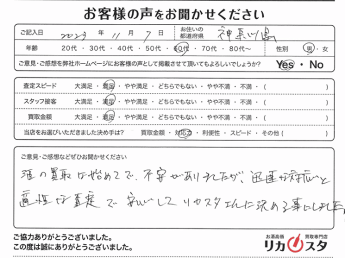 お客様の声をお聞かせください
ご記入日 2023年 11月 7日 お住いの都道府県 神奈川県
年齢 20代・30代・40代・50代・60代・70代・80代〜 性別 男・女
ご意見・ご感想を弊社ホームページにお客様の声として掲載させて頂いてもよろしいでしょうか? Yes・No
査定スピード 大満足・満足・やや満足・どちらでもない・やや不満・不満・( )
スタッフ接客 大満足・満足・やや満足・どちらでもない・やや不満・不満・( )
買取金額 大満足・満足・やや満足・どちらでもない・やや不満・不満・( )
当店をお選びいただきました決め手は? 買取金額・対応力・利便性・スピード・その他( )
ご意見・ご感想などぜひお聞かせください
酒の買取は始めてで、不安がありましたが、迅速な対応と
適性な査定で安心してリカスタさんに決める事にしました。
ご協力ありがとうございました。
この度は誠にありがとうございました。
お酒高価 買取専門店
リカスタ